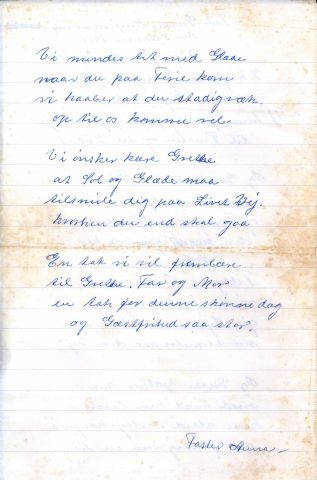 Vi mindes tit med Glæde
naar du paa Ferie kom
vi haaber at du stadigvæk
op til os komme vil.
Vi ønsker kære Grethe
at Sol og Glæde maa
tilsmile dig paa Livets Vej.
hvorhen du end skal gaa
En tak vi vil frembære
til Grethe. Far og Mor
en tak for denne skønne dag
og Gæstfrihed saa stor.
Faster Anna